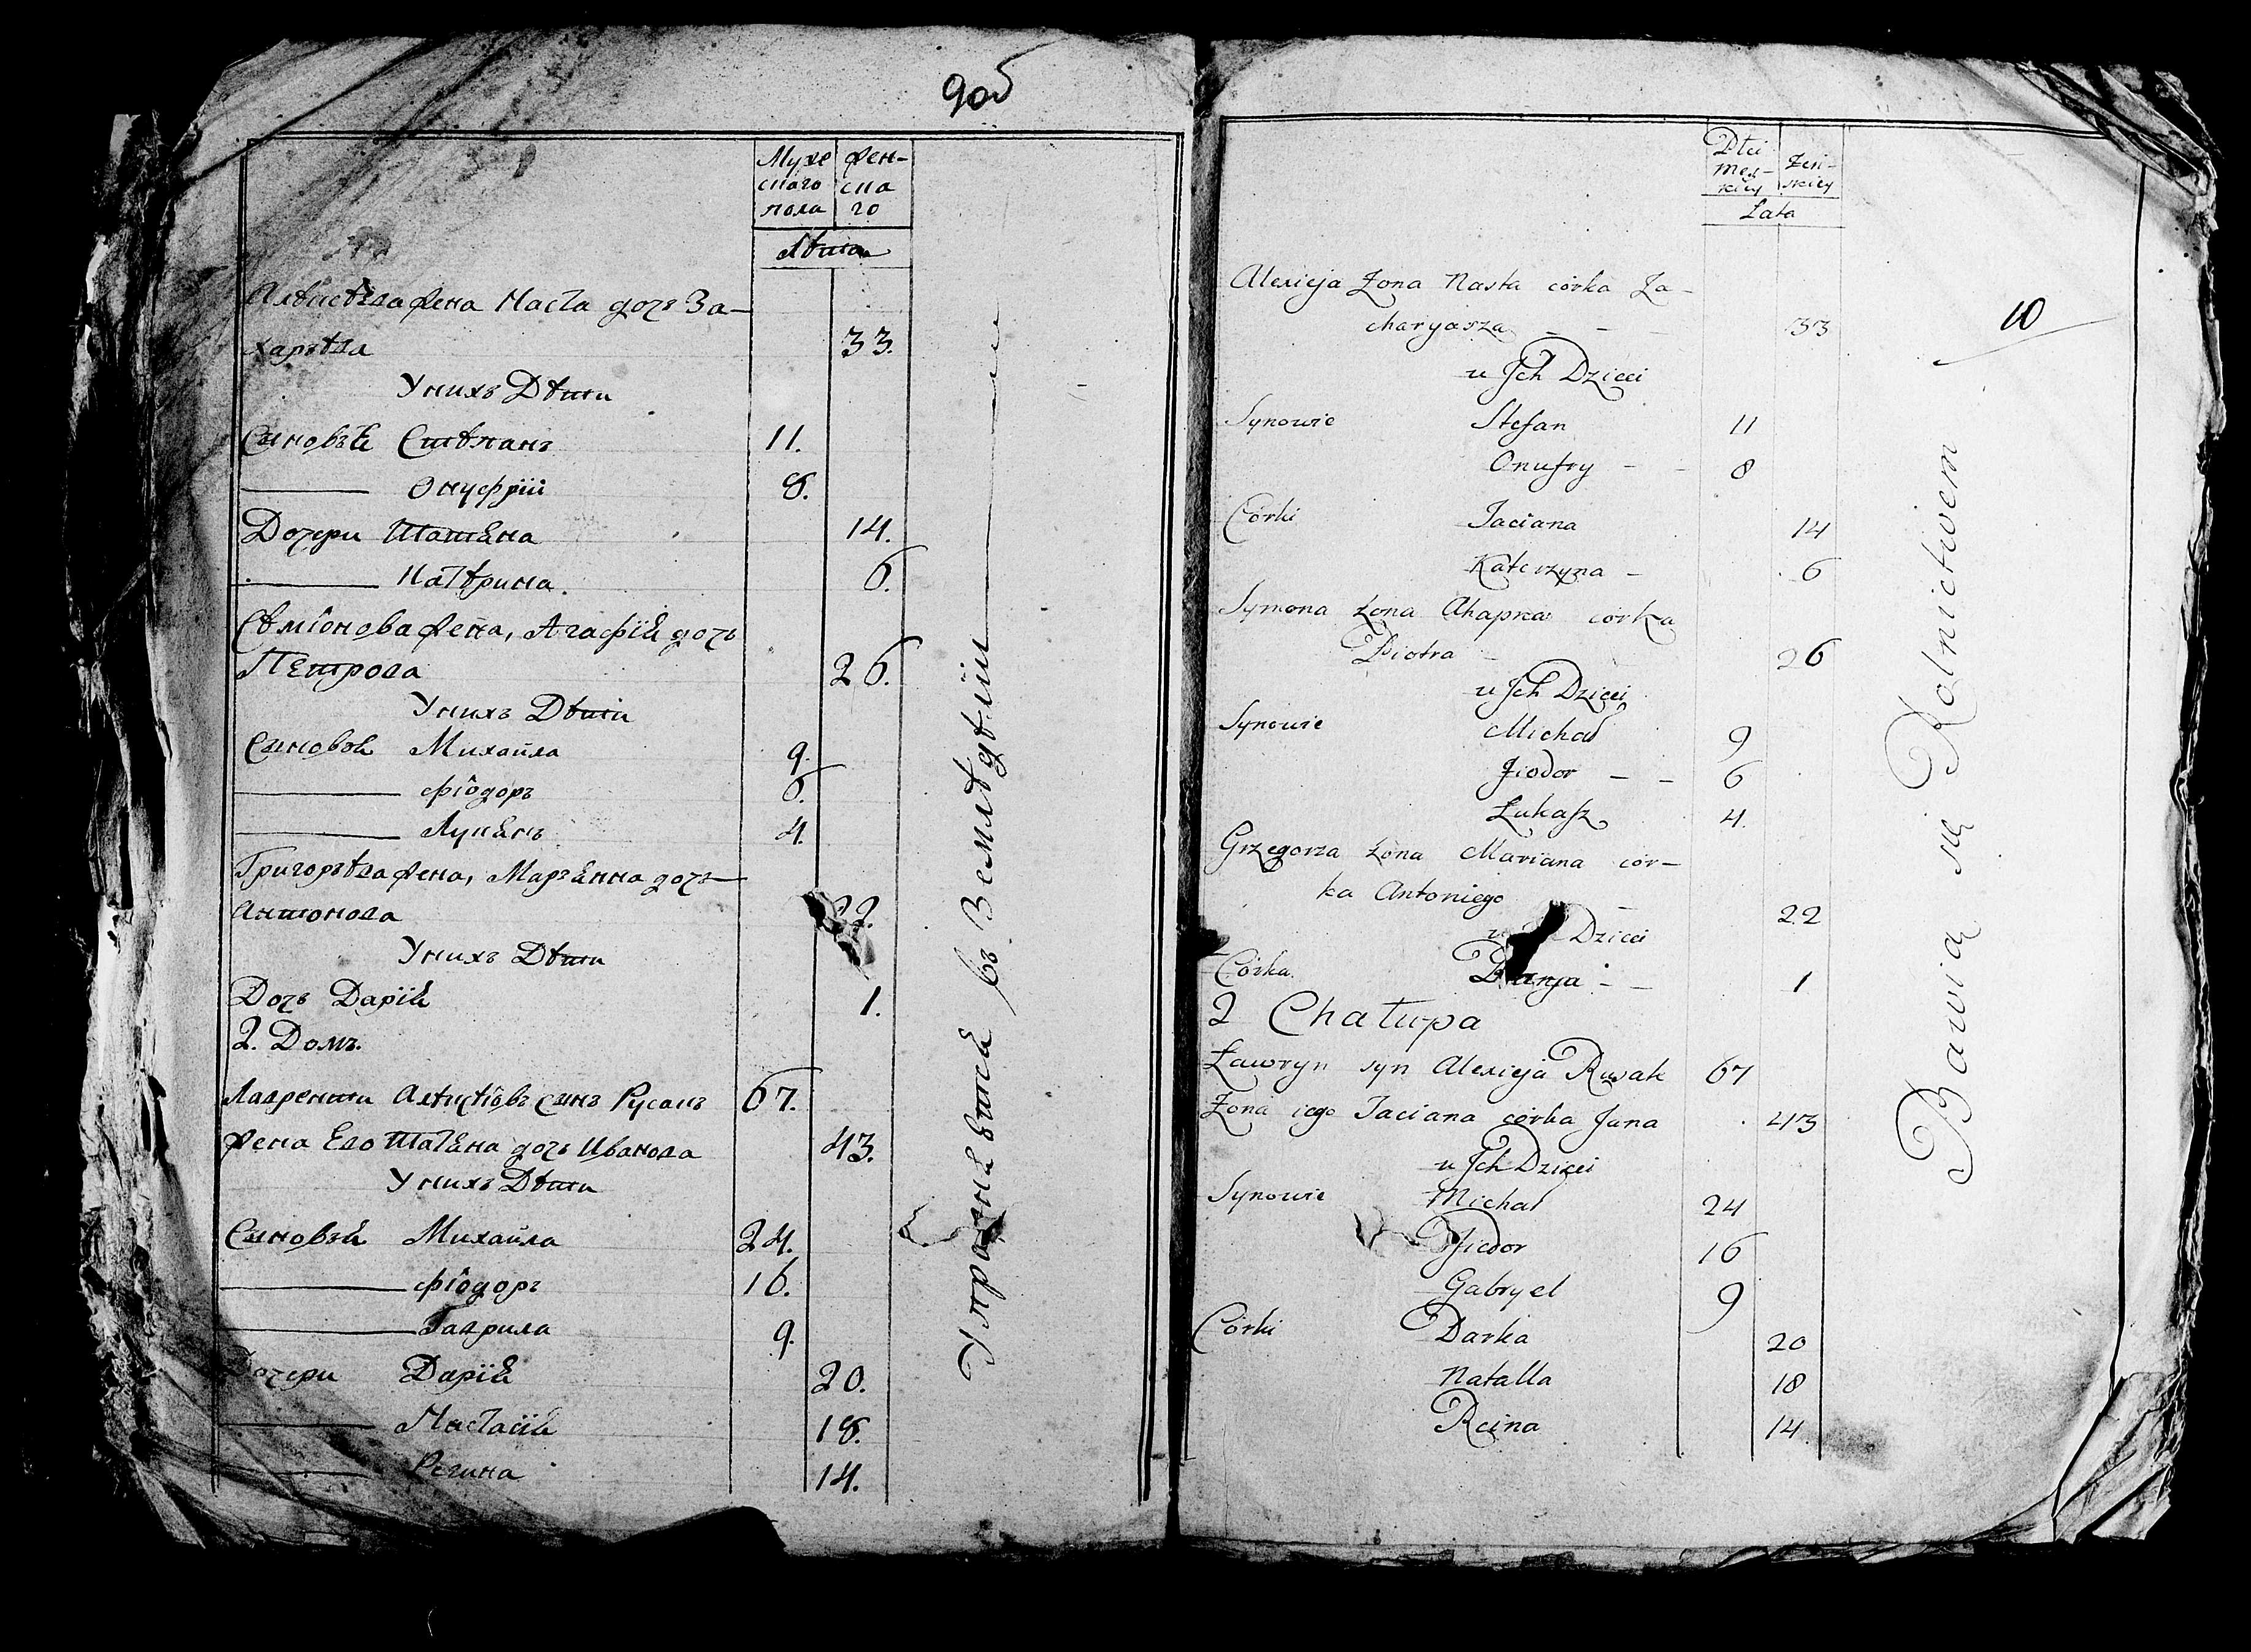 9об
Муже
скаго
пола
Жен-
ска
го
Лѣта
Алѣксѣева жена Наста дочъ За-
харѣва 33.
У нихъ Дѣти
Сыновъя Стѣпанъ 11.
Онуфрій 8.
Дочери Татяна 14.
Катѣрина. 6.
Сѣмiонова жена, Агафія дочъ
Петрова 26.
У нихъ Дѣти
Сыновъя Михайла 9.
Фiодоръ 6.
Лукянъ 4.
Григорѣва жена, Маръянна дочъ
Антонова 22.
У нихъ Дѣти
Дочъ Дарія 1.
2. Домъ.
Лавренти Алѣксѣiовъ сынъ Русакъ 67.
Жена Ево Татяна дочъ Иванова 43.
У нихъ Дѣти
Сыновъя Михайла 24.
Фiодоръ 16.
Гаврила 9.
Дочери Дарія 20.
Настасія 18.
Регина 14.
Упражняются въ Землѣдѣліи
10
Płci
męz-
kiey
żeń-
skiey
Lata
Alexieja Żona Nasta córka Za-
charyasza 33
u Jch Dzieci
Synowie Stefan 11
Onufry 8
Córki Taciana 14
Katerzyna 6
Symona żona Ahapka córka
Piotra 26
u Jch Dzieci
Synowie Michał 9
Fiodor 6
Łukasz 4.
Grzegorza żona Mariana cór-
ka Antoniego 22
u Dzieci
Córka Darja 1
2 Chałupa
Ławryn syn Alexieja Rusak 67
Żona iego Taciana córka Jana 43
u Jch Dzieci
Synowie Michał 24
Fiedor 16
Gabryel 9
Córki Darka 20
Natalla 18
Reina 14
Bawią się Rolnictwem